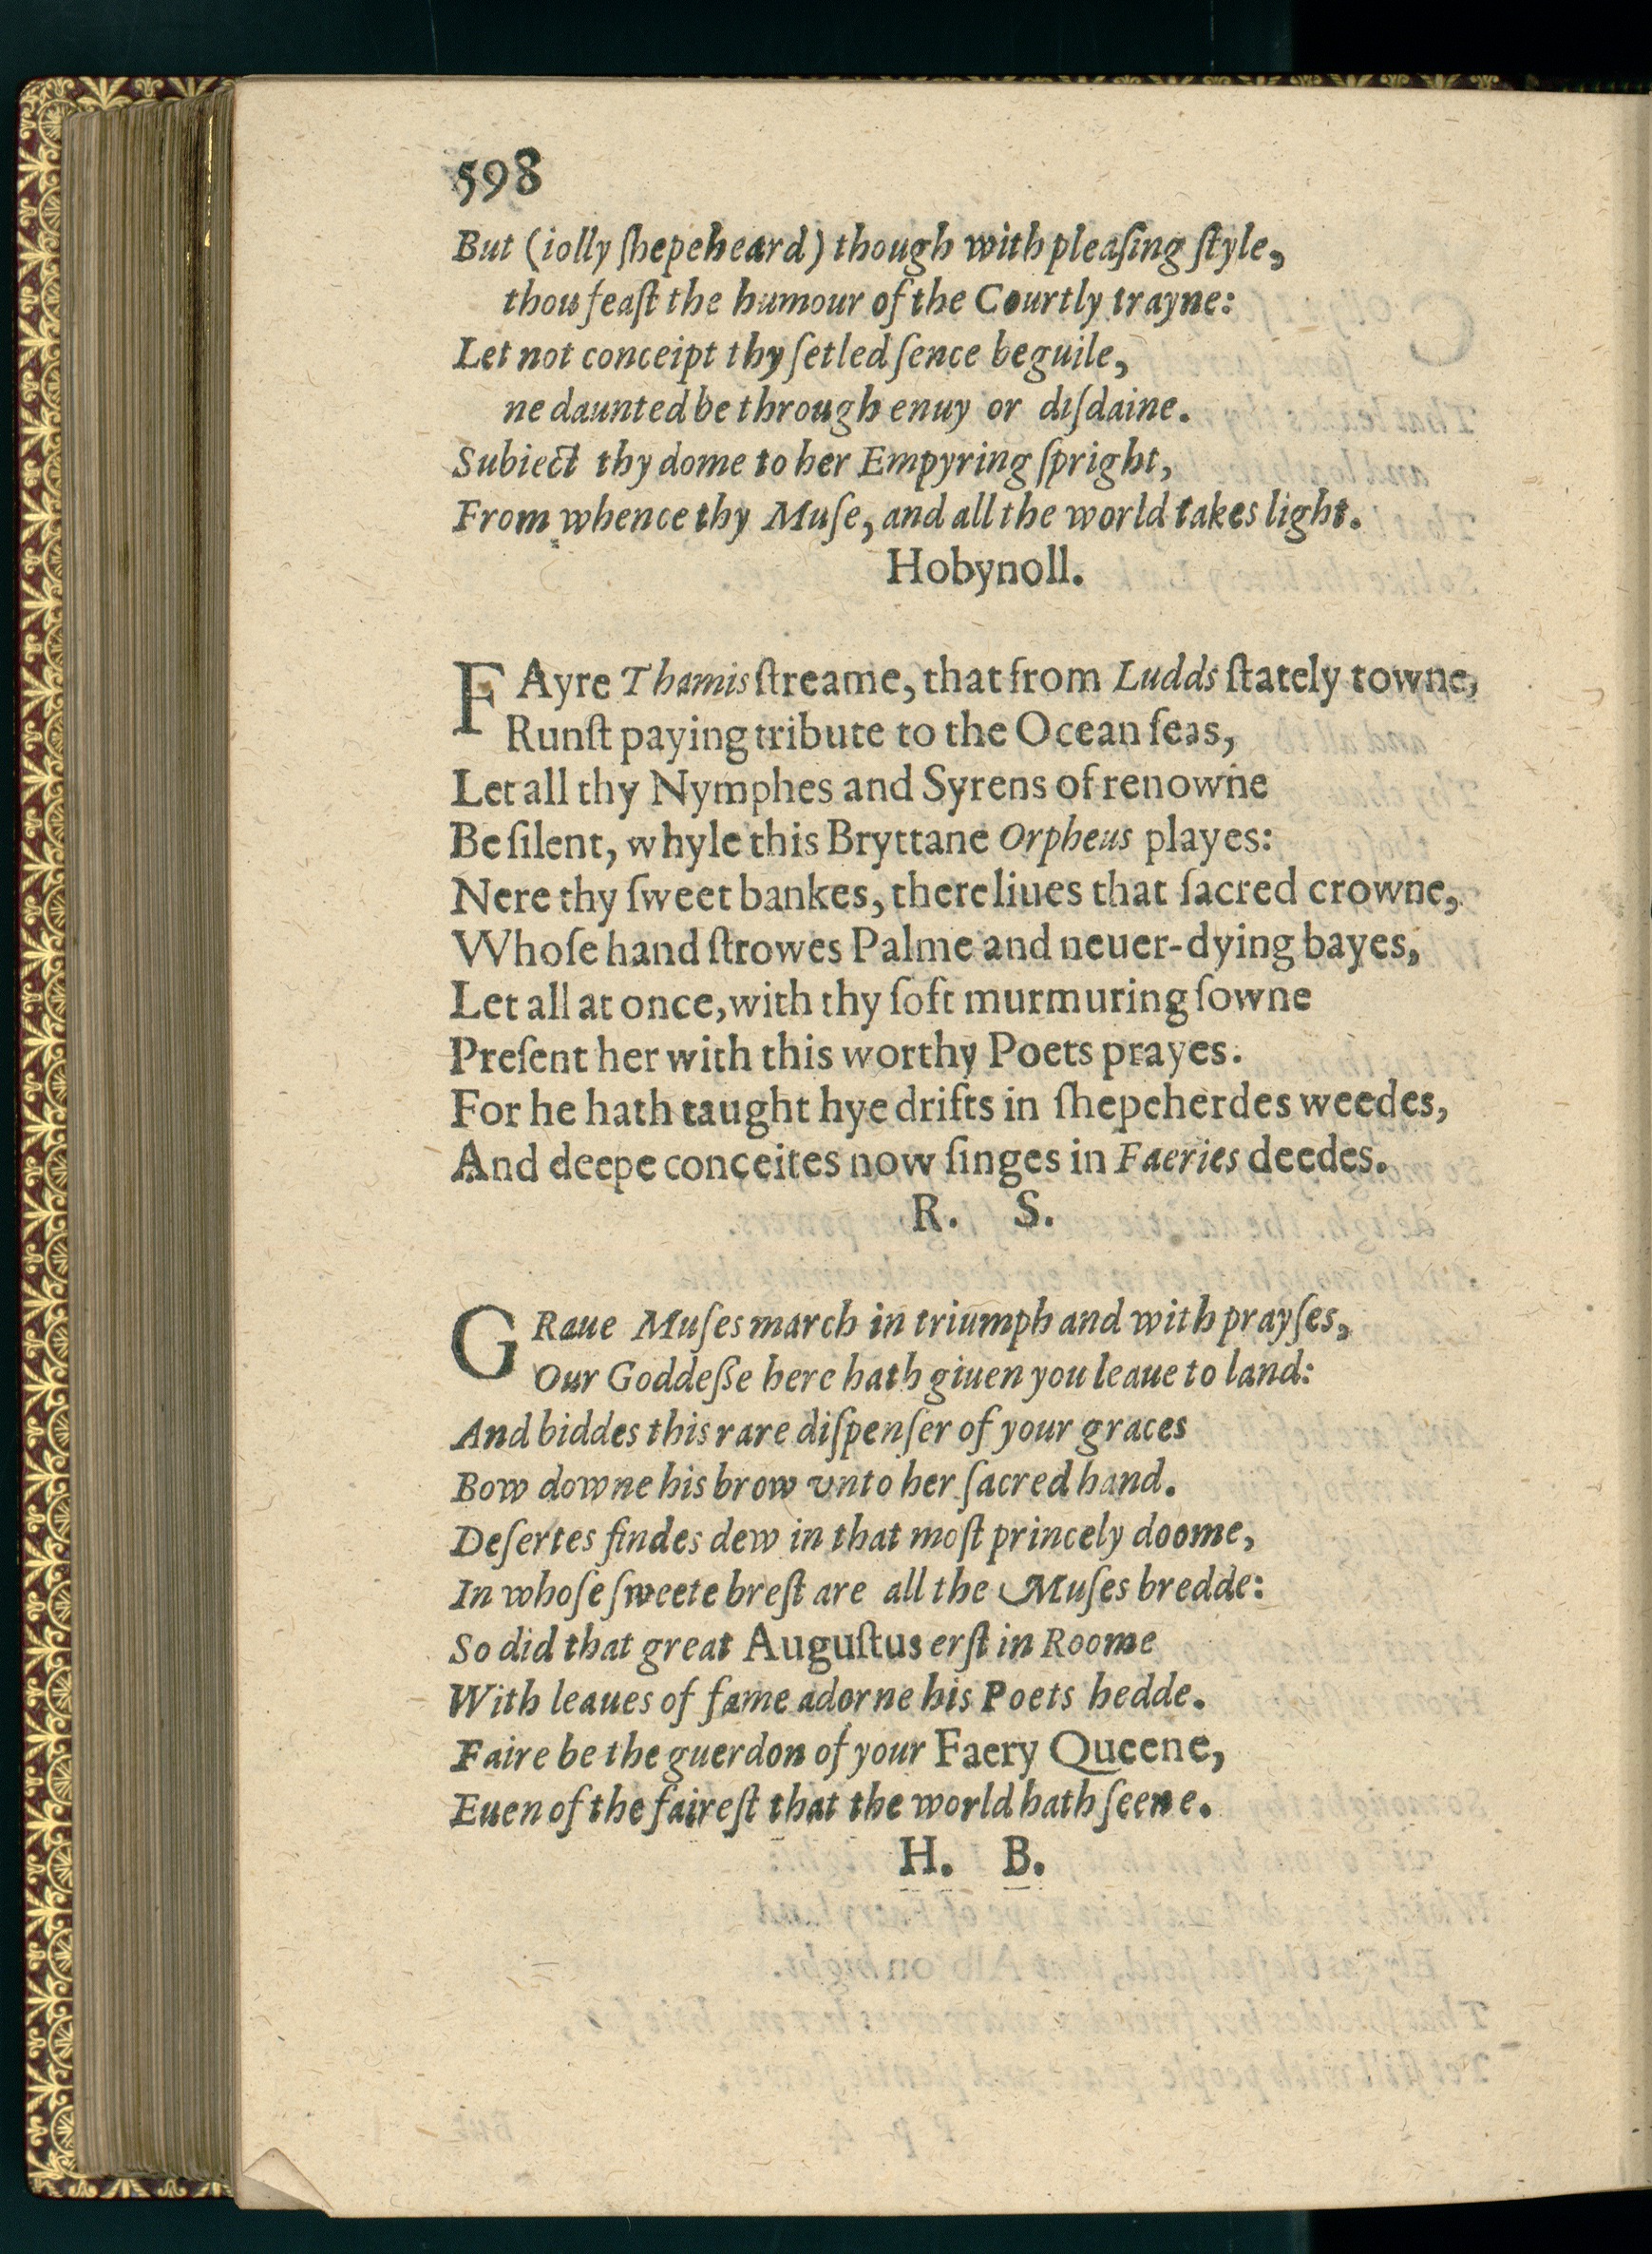 598
But (iolly ſhepeheard) though with pleaſing ſtyle,
thou feaſt the humour of the Courtly trayne:
Let not conceipt thy ſetled ſence beguile,
ne daunted be through enuy or diſdaine.
Subiect thy dome to her Empyring ſpright,
From whence thy Muſe, and all the world takes light.
Hobynoll.
FAyre Thamis ſtreame, that from Ludds ſtately towne,
Runſt paying tribute to the Ocean ſeas,
Let all thy Nymphes and Syrens of renowne
Be ſilent, whyle this Bryttane Orpheus playes:
Nere thy ſweet bankes, there liues that ſacred crowne,
Whoſe hand ſtrowes Palme and neuer-dying bayes,
Let all at once, with thy ſoft murmuring ſowne
Preſent her with this worthy Poets prayes.
For he hath taught hye drifts in ſhepeherdes weedes,
And deepe conceites now ſinges in Faeries deedes.
R. S.
GRaue Muſes march in triumph and with prayſes,
Our Goddeſſe here hath giuen you leaue to land:
And biddes this rare diſpenſer of your graces
Bow downe his brow vnto her ſacred hand.
Deſertes findes dew in that moſt princely doome,
In whoſe ſweete breſt are all the Muſes bredde:
So did that great Auguſtus erſt in Roome
With leaues of fame adorne his Poets hedde.
Faire be the guerdon of your Faery Queene,
Euen of the faireſt that the world hath ſeene.
H. B.